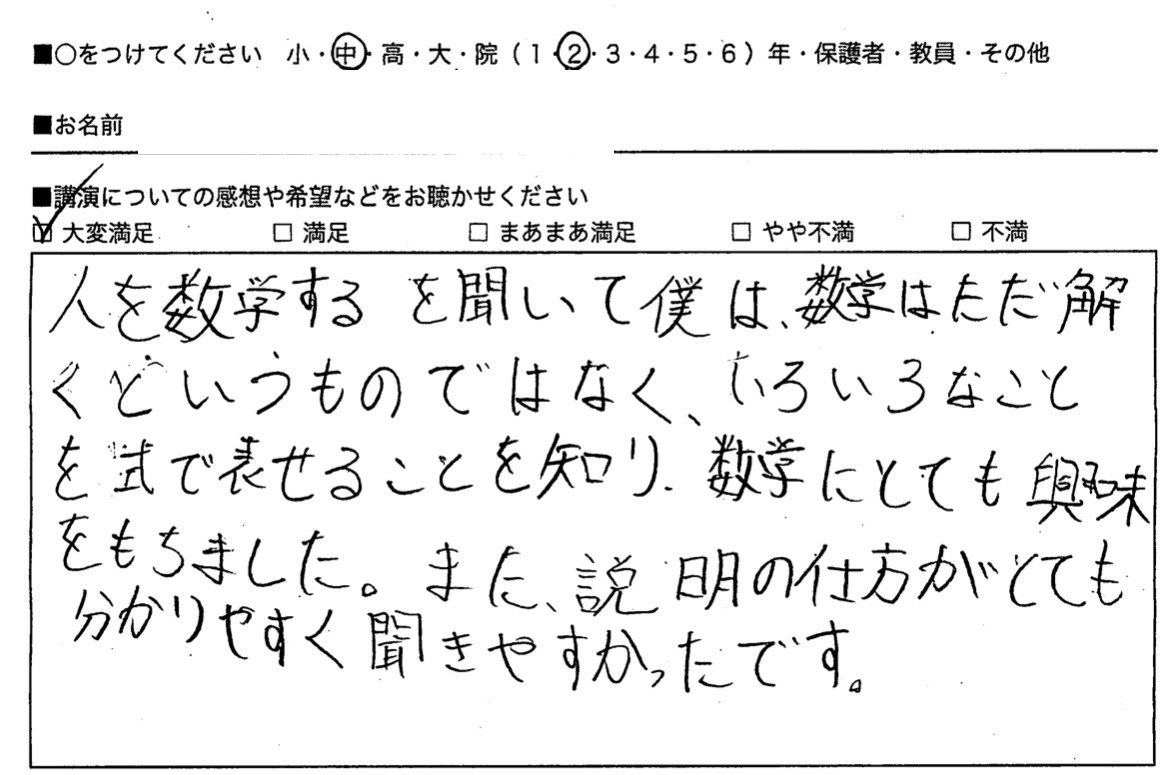 ■○をつけてください 小・中・高・大・院（1・2・3・4・5・6）年・保護者・教員・その他
■お名前
■講演についての感想や希望などをお聴かせください
□ 大変満足 □ 満足 □ まあまあ満足 □ やや不満 □ 不満
人を数学する を聞いて僕は、数学はただ解
くというものではなく、いろいろなこと
を式で表せることを知り、数学にとても興味
をもちました。また、説明の仕方がとても
分かりやすく聞きやすかったです。